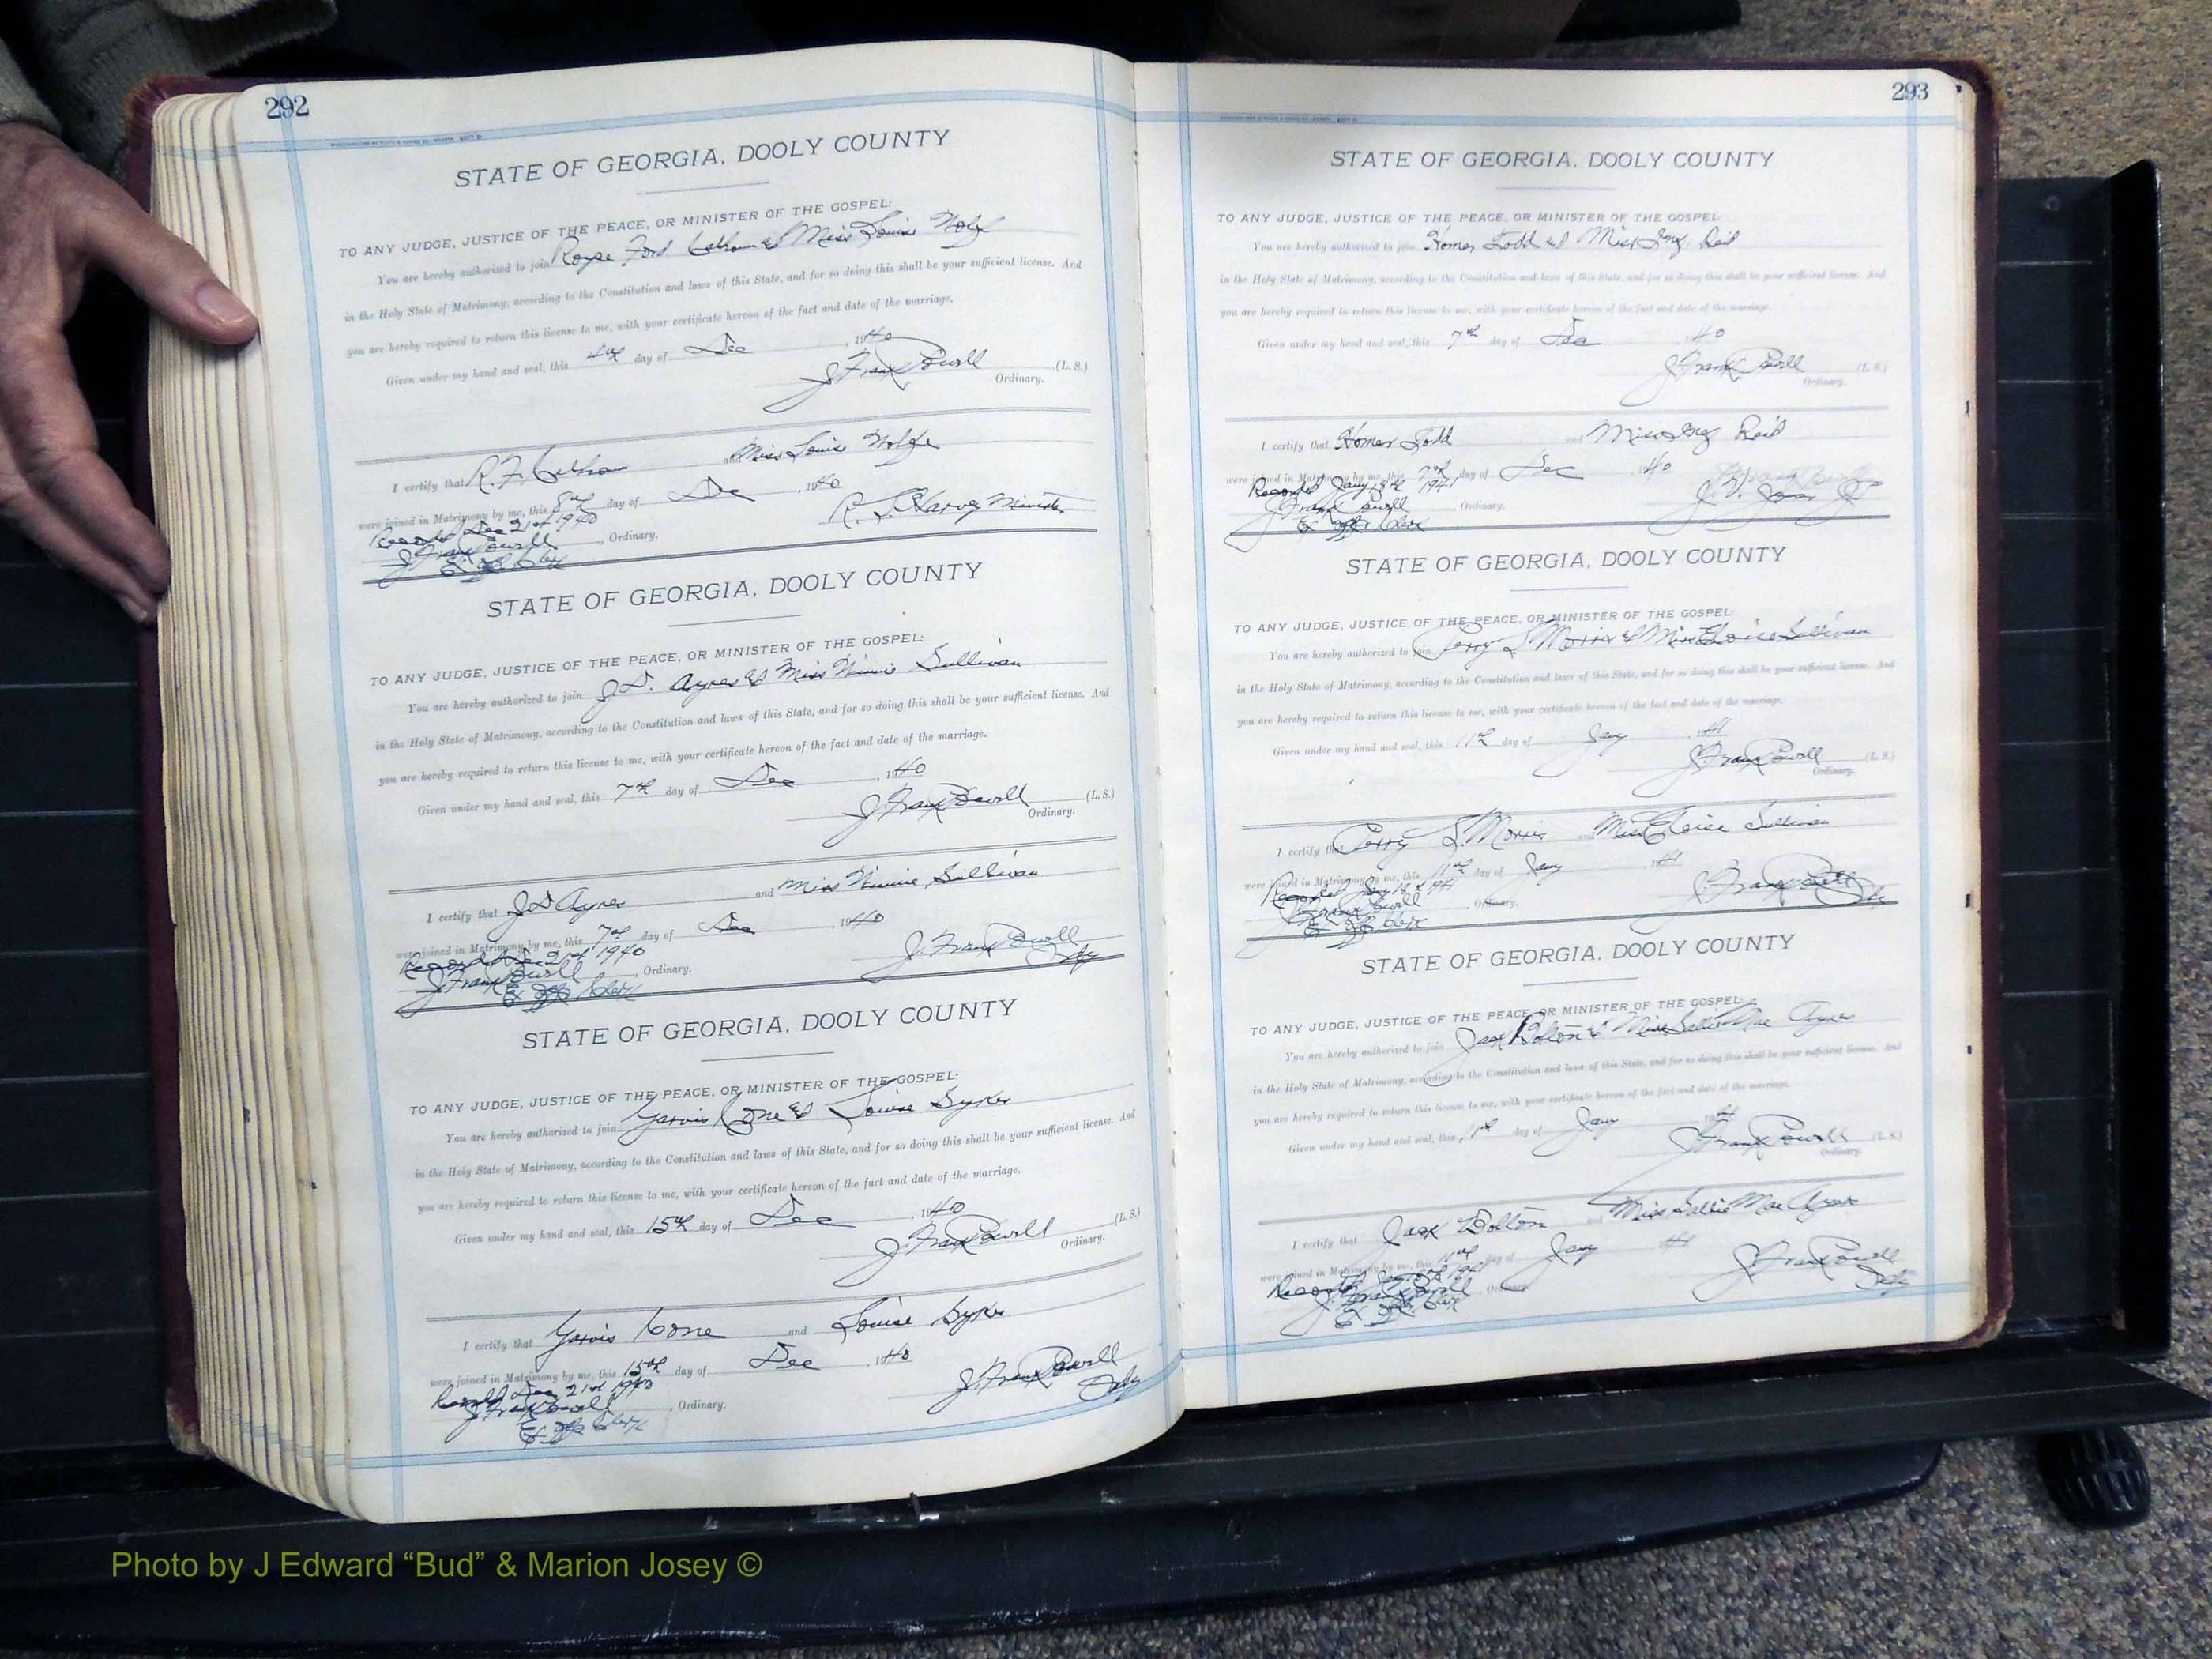 292
STATE OF GEORGIA, DOOLY COUNTY
TO ANY JUDGE, JUSTICE OF THE PEACE, OR MINISTER OF THE GOSPEL:
You are hereby authorized to join Ford & Miss Louise Wolfe
in the Holy State of Matrimony, according to the Constitution and laws of this State, and for so doing this shall be your sufficient license. And
you are hereby required to return this license to me, with your certificate hereon of the fact and date of the marriage.
Given under my hand and seal, this 4th day of Dec, 1940
J. Frank Powell (L. S.)
Ordinary.
I certify that R. F. and Miss Louise Wolfe
were joined in Matrimony by me, this 8th day of Dec, 1940
Recorded Dec 21st 1940 R. L. Harvey Minister
J. Frank Powell, Ordinary.
Ex off Clerk
STATE OF GEORGIA, DOOLY COUNTY
TO ANY JUDGE, JUSTICE OF THE PEACE, OR MINISTER OF THE GOSPEL:
You are hereby authorized to join J. D. Ayres & Miss Sullivan
in the Holy State of Matrimony, according to the Constitution and laws of this State, and for so doing this shall be your sufficient license. And
you are hereby required to return this license to me, with your certificate hereon of the fact and date of the marriage.
Given under my hand and seal, this 7th day of Dec, 1940
J. Frank Powell (L. S.)
Ordinary.
I certify that J D Ayres and Miss Sullivan
were joined in Matrimony by me, this 7th day of Dec, 1940
Recorded Dec 21st 1940 J. Frank Powell
J Frank Powell, Ordinary. Ordy
Ex off Clerk
STATE OF GEORGIA, DOOLY COUNTY
TO ANY JUDGE, JUSTICE OF THE PEACE, OR MINISTER OF THE GOSPEL:
You are hereby authorized to join Cone & Louise Sykes
in the Holy State of Matrimony, according to the Constitution and laws of this State, and for so doing this shall be your sufficient license. And
you are hereby required to return this license to me, with your certificate hereon of the fact and date of the marriage.
Given under my hand and seal, this 15th day of Dec, 1940
J. Frank Powell (L. S.)
Ordinary.
I certify that Cone and Louise Sykes
were joined in Matrimony by me, this 15th day of Dec, 1940
Recorded Dec 21st 1940 J. Frank Powell
J Frank Powell, Ordinary. Ordy
Ex off Clerk
293
STATE OF GEORGIA, DOOLY COUNTY
TO ANY JUDGE, JUSTICE OF THE PEACE, OR MINISTER OF THE GOSPEL:
You are hereby authorized to join Homer Todd & Miss Reid
in the Holy State of Matrimony, according to the Constitution and laws of this State, and for so doing this shall be your sufficient license. And
you are hereby required to return this license to me, with your certificate hereon of the fact and date of the marriage.
Given under my hand and seal, this 7th day of Dec 1940
J Frank Powell (L. S.)
Ordinary.
I certify that Homer Todd and Miss Reid
were joined in Matrimony by me, this 7th day of Dec 1940
Recorded Jany 1941
J Frank Powell, Ordinary.
Ex off Clerk
STATE OF GEORGIA, DOOLY COUNTY
TO ANY JUDGE, JUSTICE OF THE PEACE, OR MINISTER OF THE GOSPEL:
You are hereby authorized to join Perry L Morris & Miss Eloise Sullivan
in the Holy State of Matrimony, according to the Constitution and laws of this State, and for so doing this shall be your sufficient license. And
you are hereby required to return this license to me, with your certificate hereon of the fact and date of the marriage.
Given under my hand and seal, this 11th day of Jany 1941
J Frank Powell (L. S.)
Ordinary.
I certify that Perry L Morris and Miss Eloise Sullivan
were joined in Matrimony by me, this 11th day of Jany 1941
Recorded Jany 1941 J Frank Powell
J Frank Powell, Ordinary. Ordy
Ex off Clerk
STATE OF GEORGIA, DOOLY COUNTY
TO ANY JUDGE, JUSTICE OF THE PEACE, OR MINISTER OF THE GOSPEL:
You are hereby authorized to join Jack Bolton & Miss Sallie Mae Ayres
in the Holy State of Matrimony, according to the Constitution and laws of this State, and for so doing this shall be your sufficient license. And
you are hereby required to return this license to me, with your certificate hereon of the fact and date of the marriage.
Given under my hand and seal, this 11th day of Jany 1941
J Frank Powell (L. S.)
Ordinary.
I certify that Jack Bolton and Miss Sallie Mae Ayres
were joined in Matrimony by me, this 11th day of Jany 1941
Recorded J Frank Powell
J. Frank Powell Ordinary. Ordy
Ex off Clerk
Photo by J Edward “Bud” & Marion Josey ©